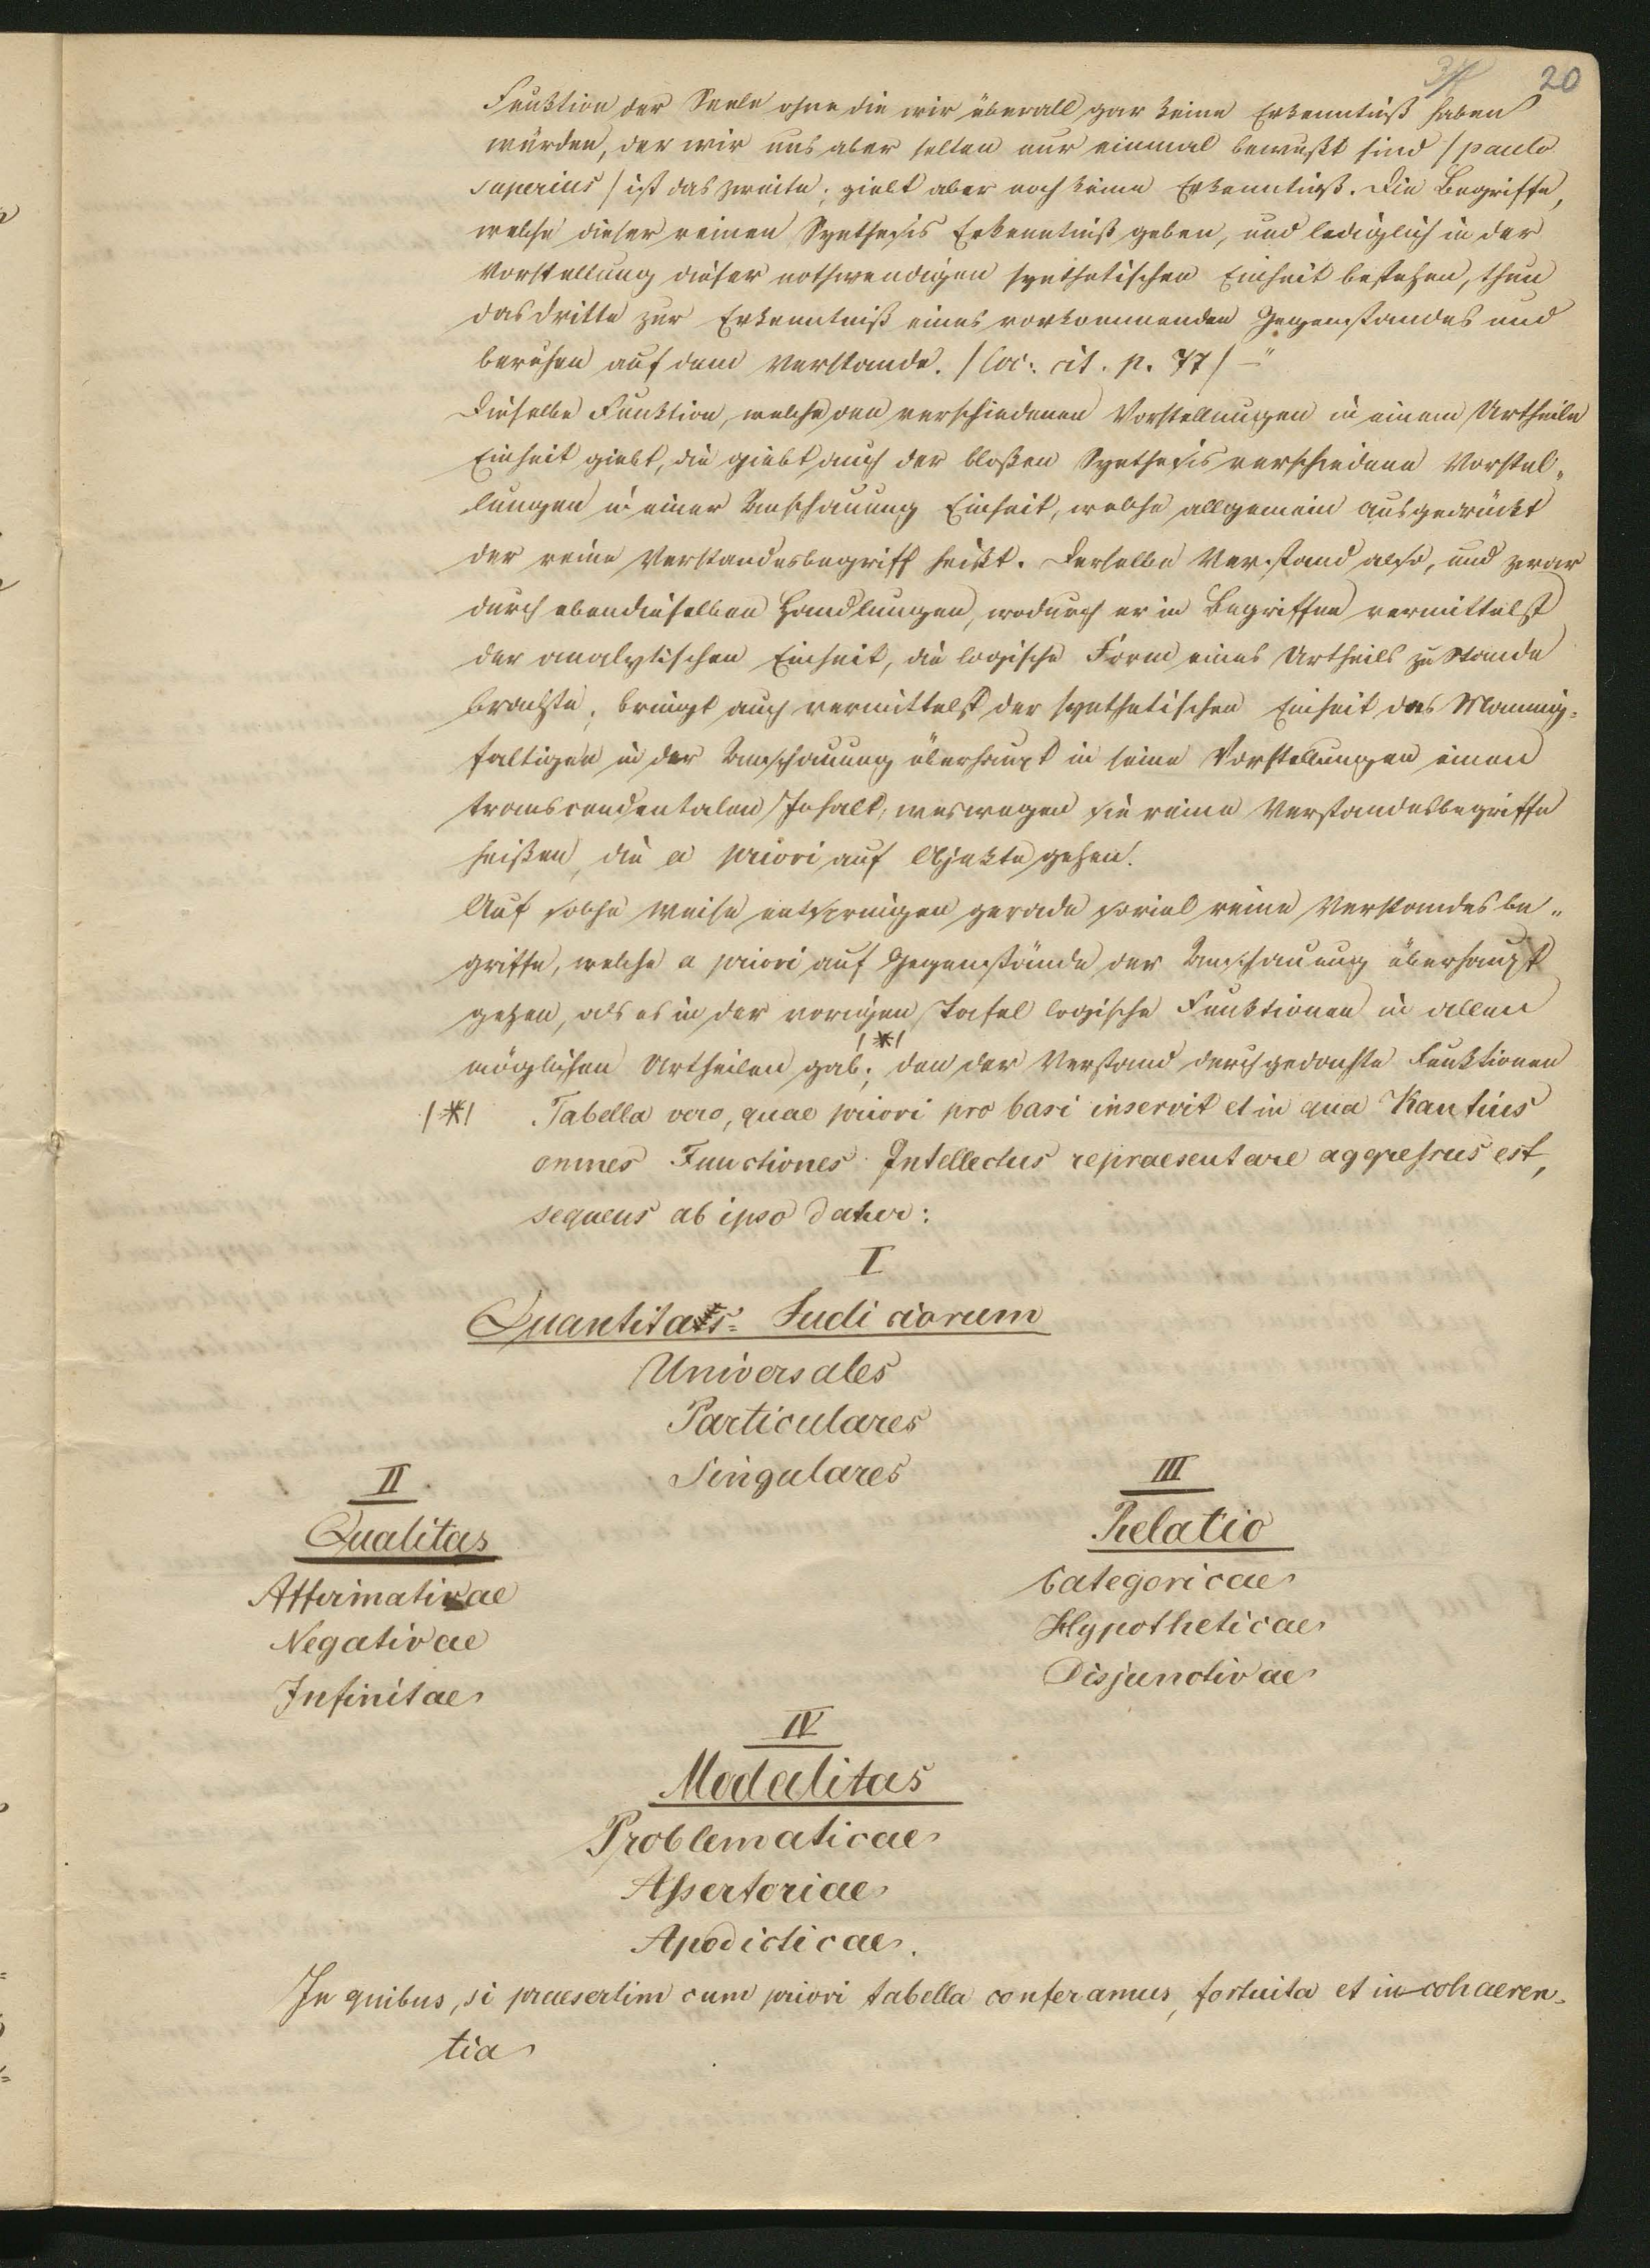 20
Funktion der Seele ohne die wir überall gar keine Erkenntniß haben
würden, der wir uns aber selten nur einmal bewußt sind /paulo
superius/ ist das zweite; giebt aber noch keine Erkenntniß. Die Begriffe,
welche dieser reinen Synthesis Erkenntniß geben, und lediglich in der
Vorstellung dieser nothwendigen synthetischen Einheit bestehen, thun
das dritte zur Erkenntniß eines vorkommenden Gegenstandes und
beruhen auf dem Verstande. /loc: cit. p. 77/ –"
Dieselbe Funktion, welche den verschiedenen Vorstellungen in einem Urtheile
Einheit giebt, die giebt auch der bloßen Synthesis verschiedene Vorstel„
lungen in einer Anschauung Einheit, welche allgemein ausgedrückt
der reine Verstandesbegriff heißt. Derselbe Verstand also, und zwar
durch ebendieselben Handlungen, wodurch er in Begriffen vermittelst
der analytischen Einheit, die logische Form eines Urtheils zu Stande
brachte, bringt auch vermittelst der synthetischen Einheit des Mannig=
faltigen in der Anschauung überhaupt in seine Vorstellungen einen
transcendentalen Inhalt, weswegen sie reine Verstandesbegriffe
heißen, die a priori auf Objekte gehen.
Auf solche Weise entspringen gerade soviel reine Verstandesbe„
griffe, welche a priori auf Gegenstände der Anschauung überhaupt
gehen, als es in der vorigen Tafel logische Funktionen in allen
möglichen Urtheilen gab; /*/ den der Verstand durch gedachte Funktionen
/*/ Tabella vero, quae priori pro basi inservit et in qua Kantius
omnes Functiones Intellectus repraesentare aggressus est,
sequens ab ipso datur:
I
Quantitas Judiciorum
Universales
Particulares
Singulares
II
Qualitas
Affirmativae
Negativae
Infinitae
III
Relatio
Categoricae
Hypotheticae
Disjunctivae
IV
Modalitas
Problematicae
Assertoriae
Apodicticae.
In quibus, si praesertim cum priori tabella conferamus, fortuita et in cohaeren=
tia